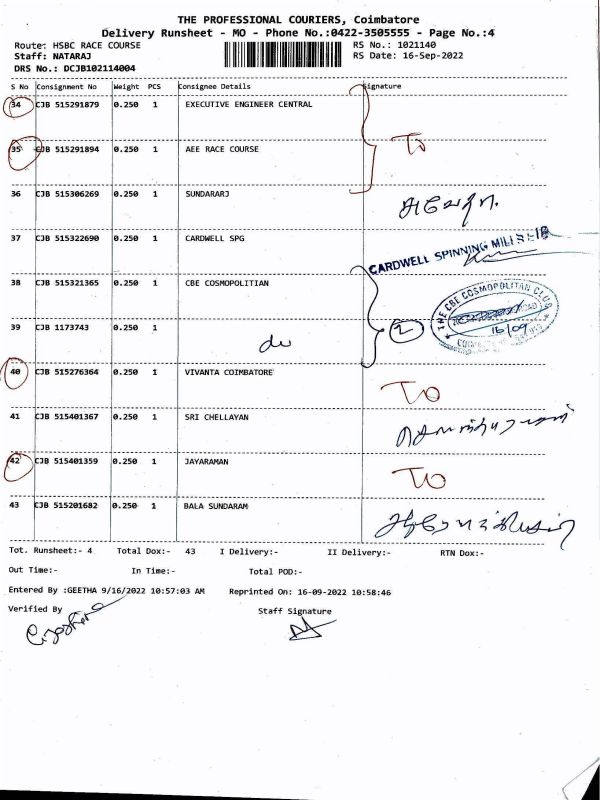 THE PROFESSIONAL COURIERS, Coimbatore
Delivery Runsheet - MO - Phone No.:0422-3505555 - Page No.:4
Route: HSBC RACE COURSE RS No.: 1021140
Staff: NATARAJ RS Date: 16-Sep-2022
DRS No.: DCJB102114004
S No Consignment No Weight PCS Consignee Details Signature
34 CJB 515291879 0.250 1 EXECUTIVE ENGINEER CENTRAL
35 CJB 515291894 0.250 1 AEE RACE COURSE To
36 CJB 515306269 0.250 1 SUNDARARJ
37 CJB 515322690 0.250 1 CARDWELL SPG CARDWELL SPINNING MILLS LTD
38 CJB 515321365 0.250 1 CBE COSMOPOLITIAN THE CBE COSMOPOLITAN CLUB
39 CJB 1173743 0.250 1 do 2 16/09
40 CJB 515276364 0.250 1 VIVANTA COIMBATORE TO
41 CJB 515401367 0.250 1 SRI CHELLAYAN
42 CJB 515401359 0.250 1 JAYARAMAN TO
43 CJB 515201682 0.250 1 BALA SUNDARAM
Tot. Runsheet:- 4 Total Dox:- 43 I Delivery:- II Delivery:- RTN Dox:-
Out Time:- In Time:- Total POD:-
Entered By :GEETHA 9/16/2022 10:57:03 AM Reprinted On: 16-09-2022 10:58:46
Verified By Staff Signature